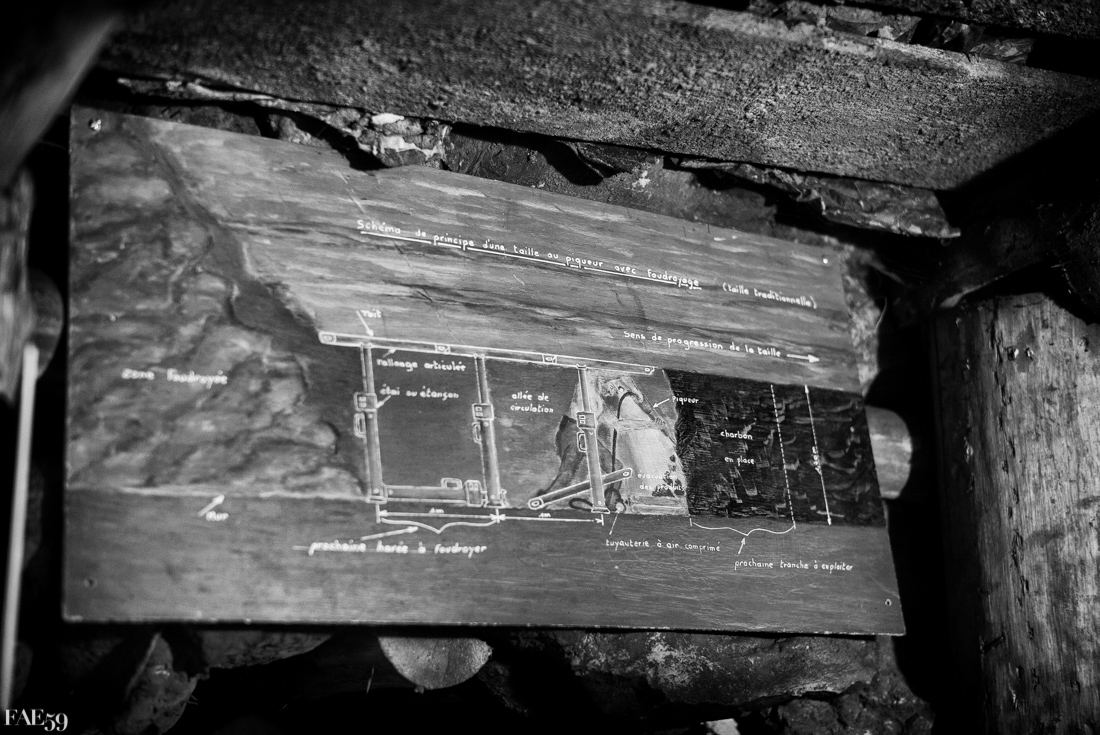 Schéma de principe d'une taille au piqueur avec Foudroyage (taille traditionnelle)
Sens de progression de la taille
Toit
rallonge articulée
étai ou étançon
zone Foudroyée
allée de
circulation
piqueur
charbon
en place
évacuation
des produits
1m
1m
Mur
prochaine havée à Foudroyer
tuyauterie à air comprimé
prochaine tranche à exploiter
FAE59